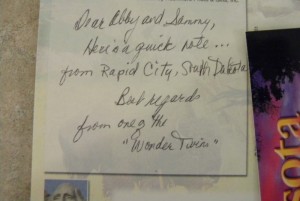 Dear Abby and Sammy,
Here's a quick note...
from Rapid City, South Dakota
Best regards
from one of the
"Wonder Twins"
sota